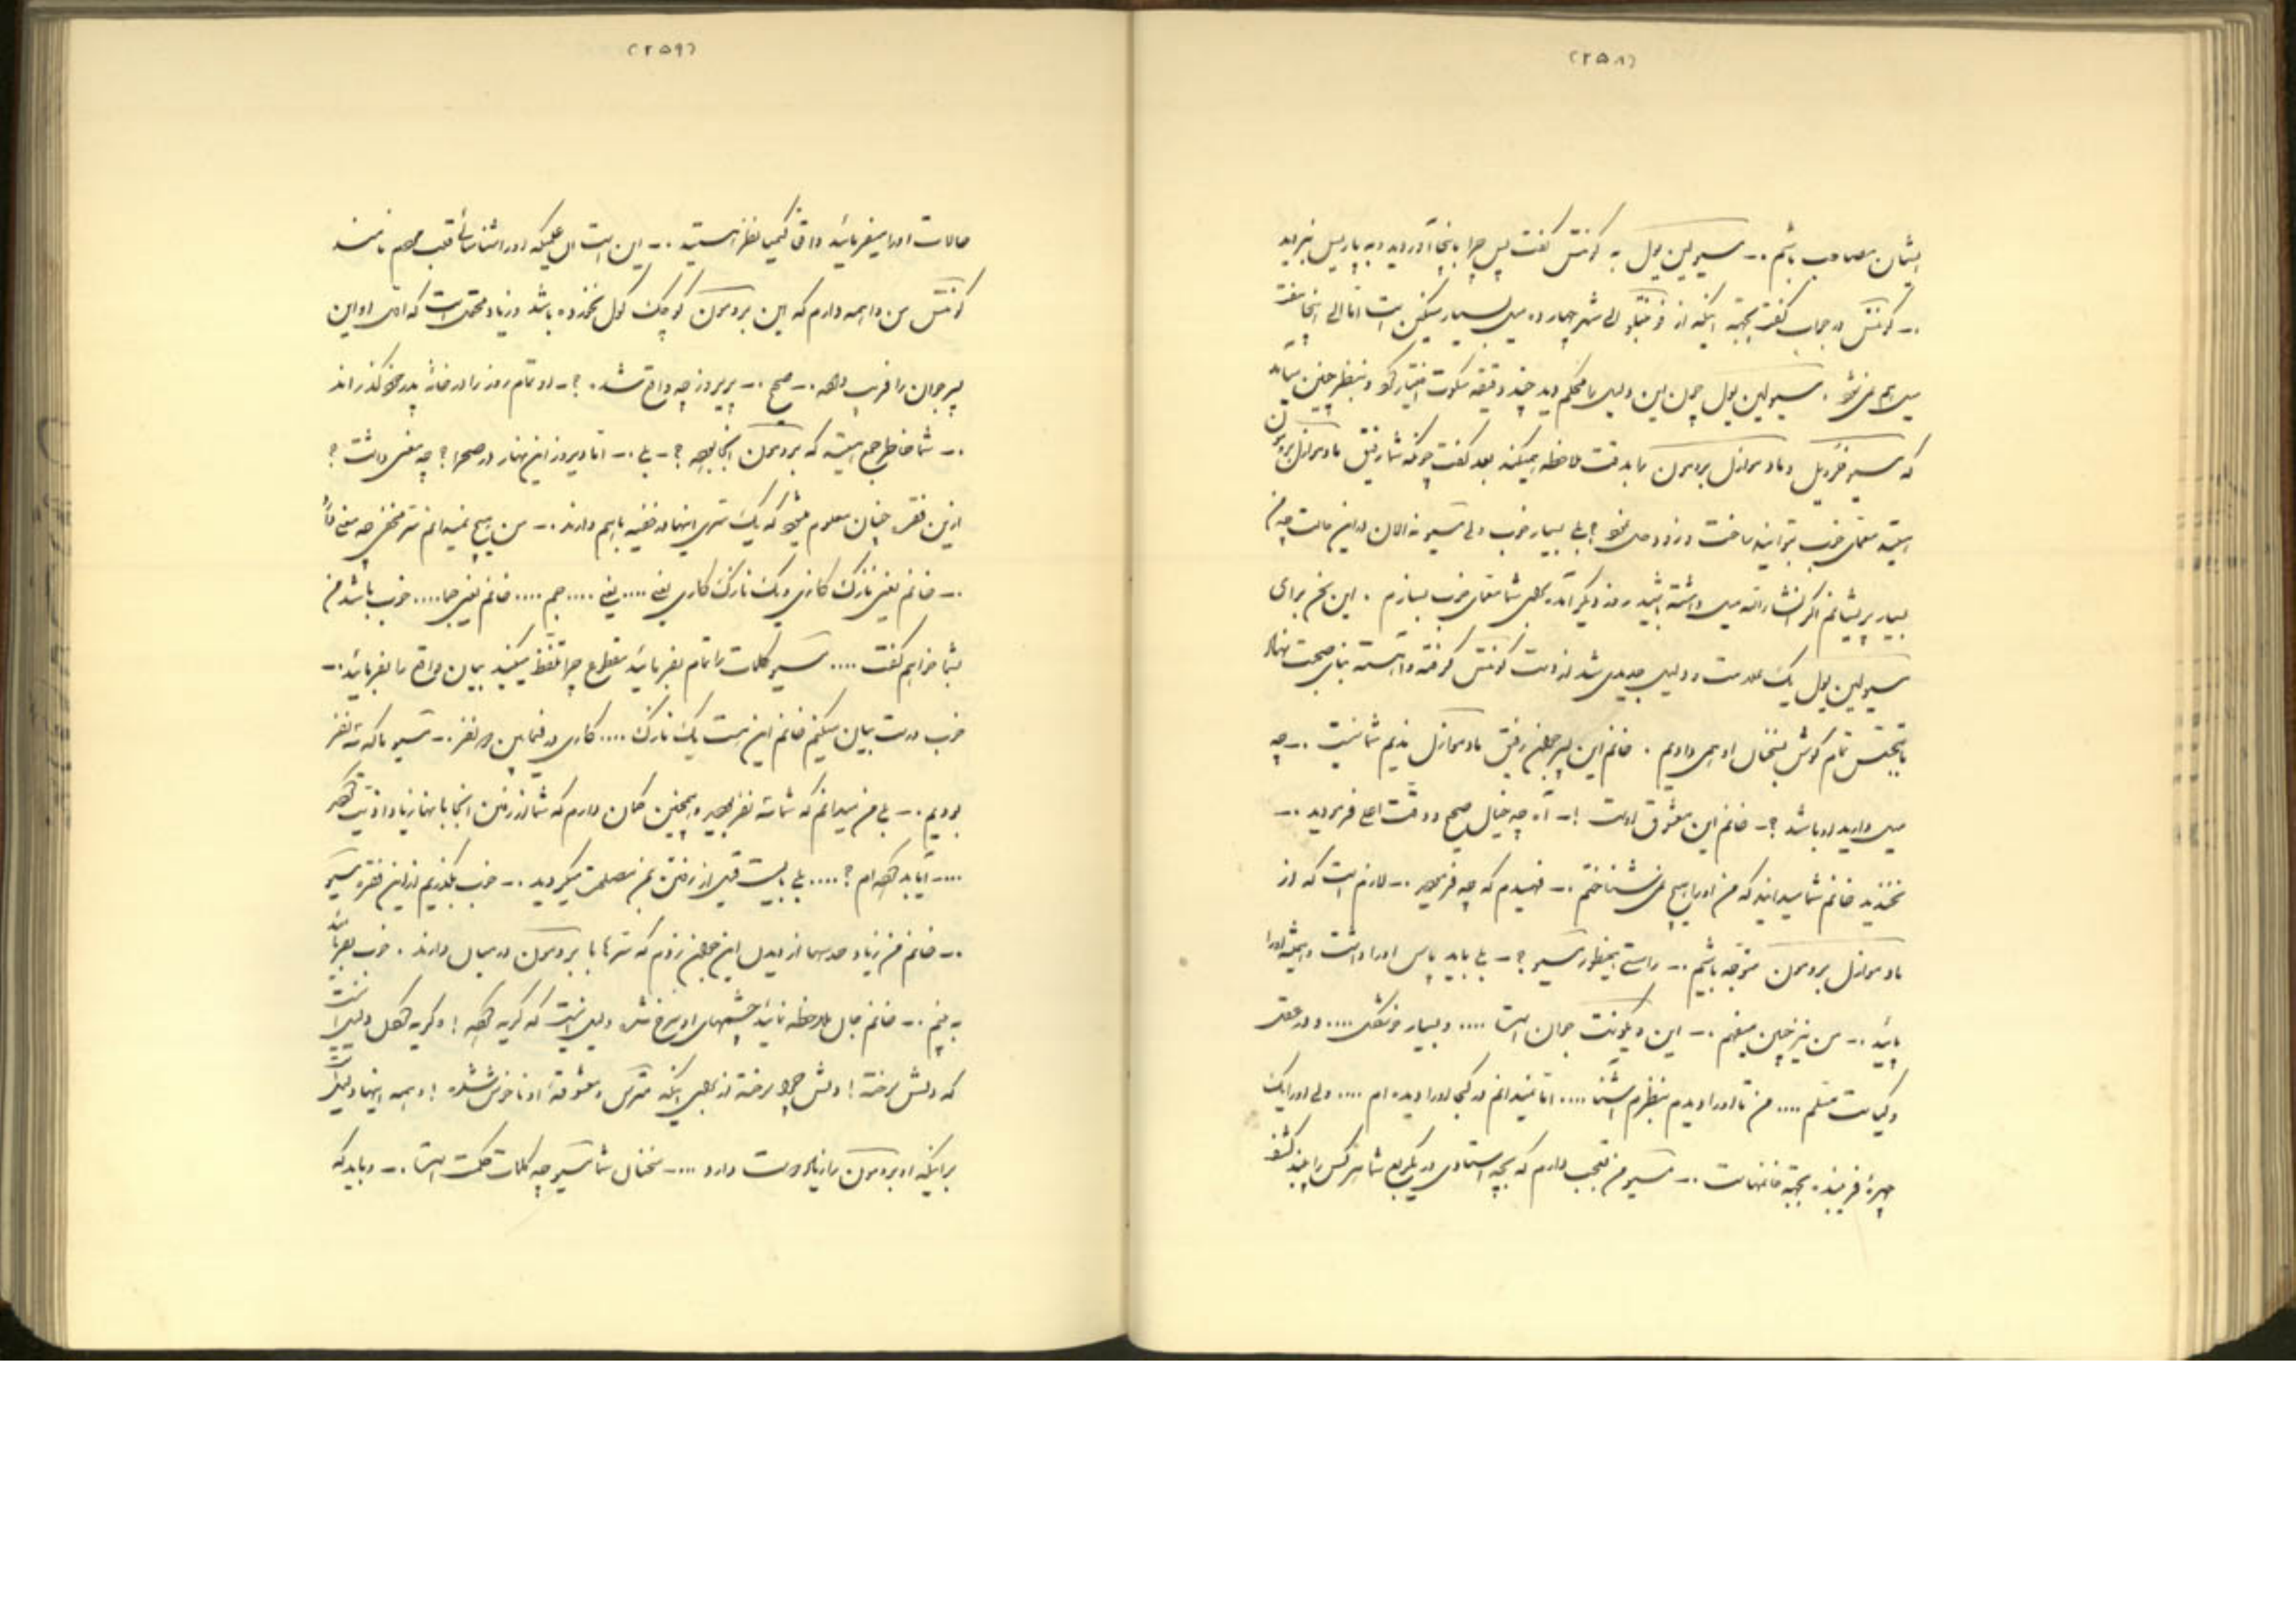 (۲۵۸)
ایشان مصاحب باشم .- مسیو لین پول به کونتس گفت پس چرا باینجا آوردید و به پاریس نبردید
.- کونتس در جواب گفت بجهة اینکه از فونتنبلو الی شهر چهارده میل بسیار سنگین است اما الی اینجا هفت
میل هم نمی شود . مسیو لین پول چون این دلیل را محکم دید چند دقیقه سکوت اختیار کرد و بنظر چنین میآمد
که مسیو فردیل و مادموازل بروسرن را بدقت ملاحظه میکند بعد گفت چونکه شما رفیق مادموازل بروسرن
هستید معمای خوب توانید ساخت و زود حل نمود ؟ بلی بسیار خوب ولی مسیو نه الان در این حالت چه من
بسیار پریشانم اگر انشاءالله میل داشته باشید روز دیگر آمده برای شما معمای خوب بسازم . این سخن برای
مسیو لین پول یک علامت و دلیل جدیدی شد از دست کونتس گرفته و آهسته بنای صحبت نهاد
تمام گوش بسخنان او همی دادیم . خانم این پسر جوان رفیق مادموازل ندیم شما نیست .- چه
میل دارید او باشد ؟- خانم این معشوق اوست !- آه چه خیال صحیح و دقت اعلی فرمودید .-
نخندید خانم شما میدانید که من او را هیچ نمی شناختم .- فهمیدم که چه فرمودید .- لازم است که از
مادموازل بروسرن متوجه باشیم .- راستی اینطور مسیو ؟- بلی باید پاس او را داشت و همیشه او را
پائید .- من نیز چنین میفهم .- این ویکونت جوان است .... و بسیار خوشگل .... و در عقل
و کیاست مسلم .... من تا او را دیدم بنظرم آشنا .... اما نمیدانم در کجا او را دیده ام .... ولی او را یک
چهرهٔ فریبنده بجهة خانمهاست .- مسیو من تعجب دارم که بچه استادی در یکربع شما هر کس را پسند کشف
(۲۵۹)
حالات او را میفرمائید واقعاً کیمیا نظر هستید .- این است ال علمیکه او را شناسائی قلب مردم نامند
کونتس من واهمه دارم که این بروسرن کوچک گول نخورده باشد و زیاد محتمل است که اوّل او این
پسر جوان را فریب دهد .- صحیح .- پریروز چه واقع شد . ؟- او تمام روز را در خانهٔ پدر خود گذراند
.- شما خاطر جمع هستید که بروسرن آنجا بوده ؟- بلی .- اما دیروز این نهار در صحرا ؟ چه معنی داشت ؟
ازین فقره چنان معلوم میشود که یک سری اینها در خفیه باهم دارند .- من هیچ نمیدانم سر مخفی چه معنی دارد
.- خانم یعنی نازک کاری و یک نازک کاری یعنی .... یعنی .... جم .... خانم یعنی جما .... خوب باشد من
بشما خواهم گفت .... مسیو کلمات را تمام بفرمائید مقطوع چرا تلفظ میکنید بیان واقع را بفرمائید .-
خوب درست بیان میکنم خانم این است یک نازک .... کاری در فیمابین دو نفر .- مسیو ما که سه نفر
بودیم .- بلی من میدانم که شما سه نفر بودید و همچنین گمان دارم که شما از رفتن آنجا بآنها زیاد اذیت کردید
.... آیا بد کرده ام ؟ .... بلی بایست قبل از رفتن بمن مصلحت میکردید .- خوب بگذریم از این فقره مسیو
.- خانم من زیاد حدسها از دیدن این جوان زدم که سرّها با بروسرن در میان دارند . خوب بفرمائید
به بینم .- خانم حال ملاحظه نمائید چشمهای او سرخ شده دلیل اینست که گریه کرده ! و گریه کردن دلیل اینست
که دلش سوخته ! دلش چرا سوخته از برای اینکه مترس و معشوقهٔ او ناخوش شده ! و همه اینها دلیل است
برایکه او بروسرن را زیاد دوست دارد .... سخنان شما مسیو چه کلمات حکمت است .- و باید که